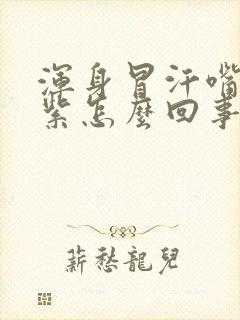 渾身冒汗嘴
紫怎麼回事
薪愁龍兒